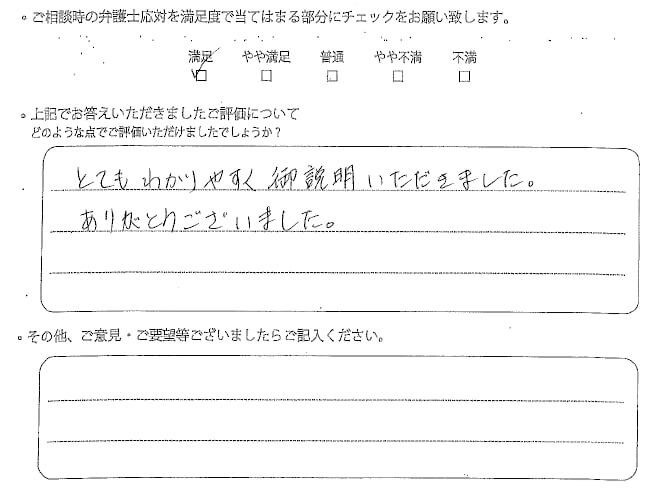 。ご相談時の弁護士応対を満足度で当てはまる部分にチェックをお願い致します。
満足 やや満足 普通 やや不満 不満
。上記でお答えいただきましたご評価について
どのような点でご評価いただけましたでしょうか？
とてもわかりやすく御説明いただきました。
ありがとうございました。
。その他、ご意見・ご要望等ございましたらご記入ください。